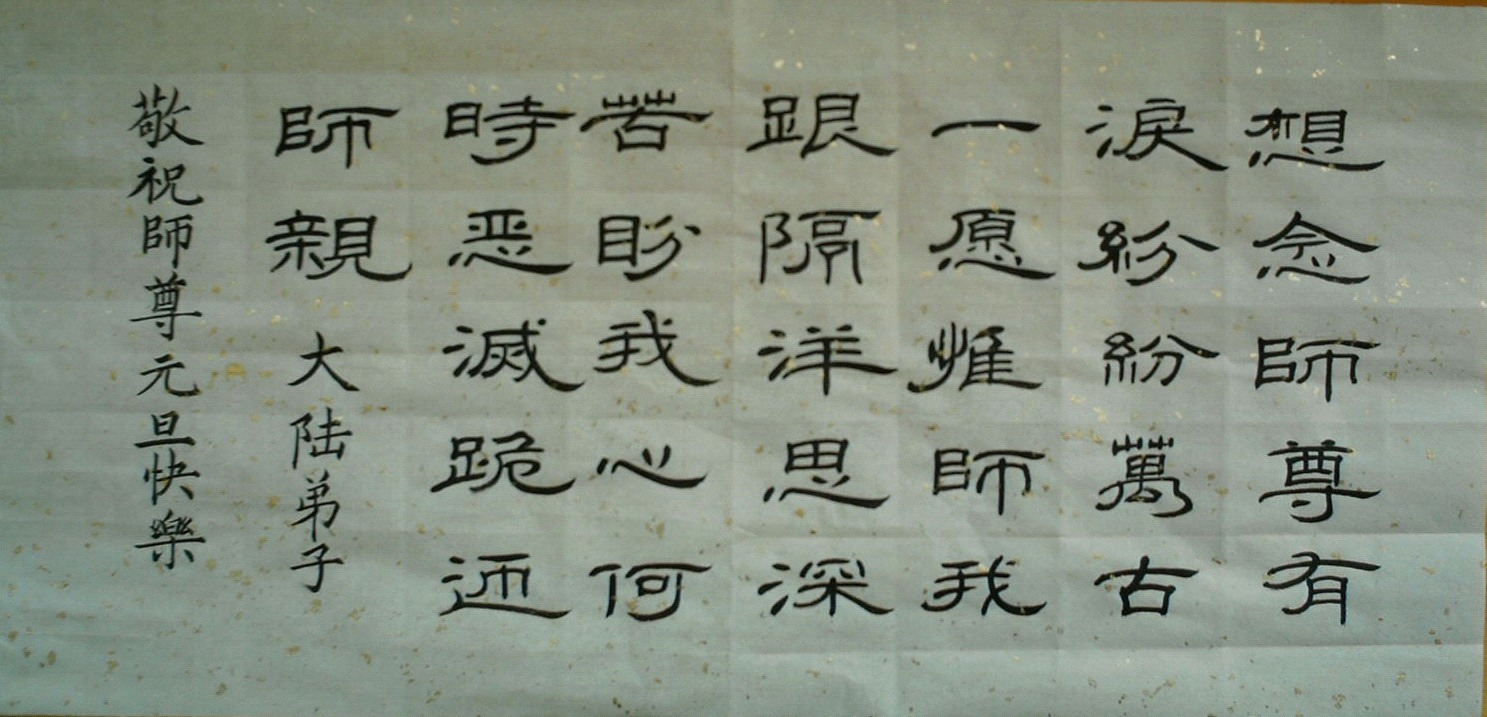 想念師尊有
淚紛紛萬古
一愿惟師我
跟隔洋思深
苦盼我心何
時恶滅跪迊
師親 大陆弟子
敬祝師尊元旦快樂